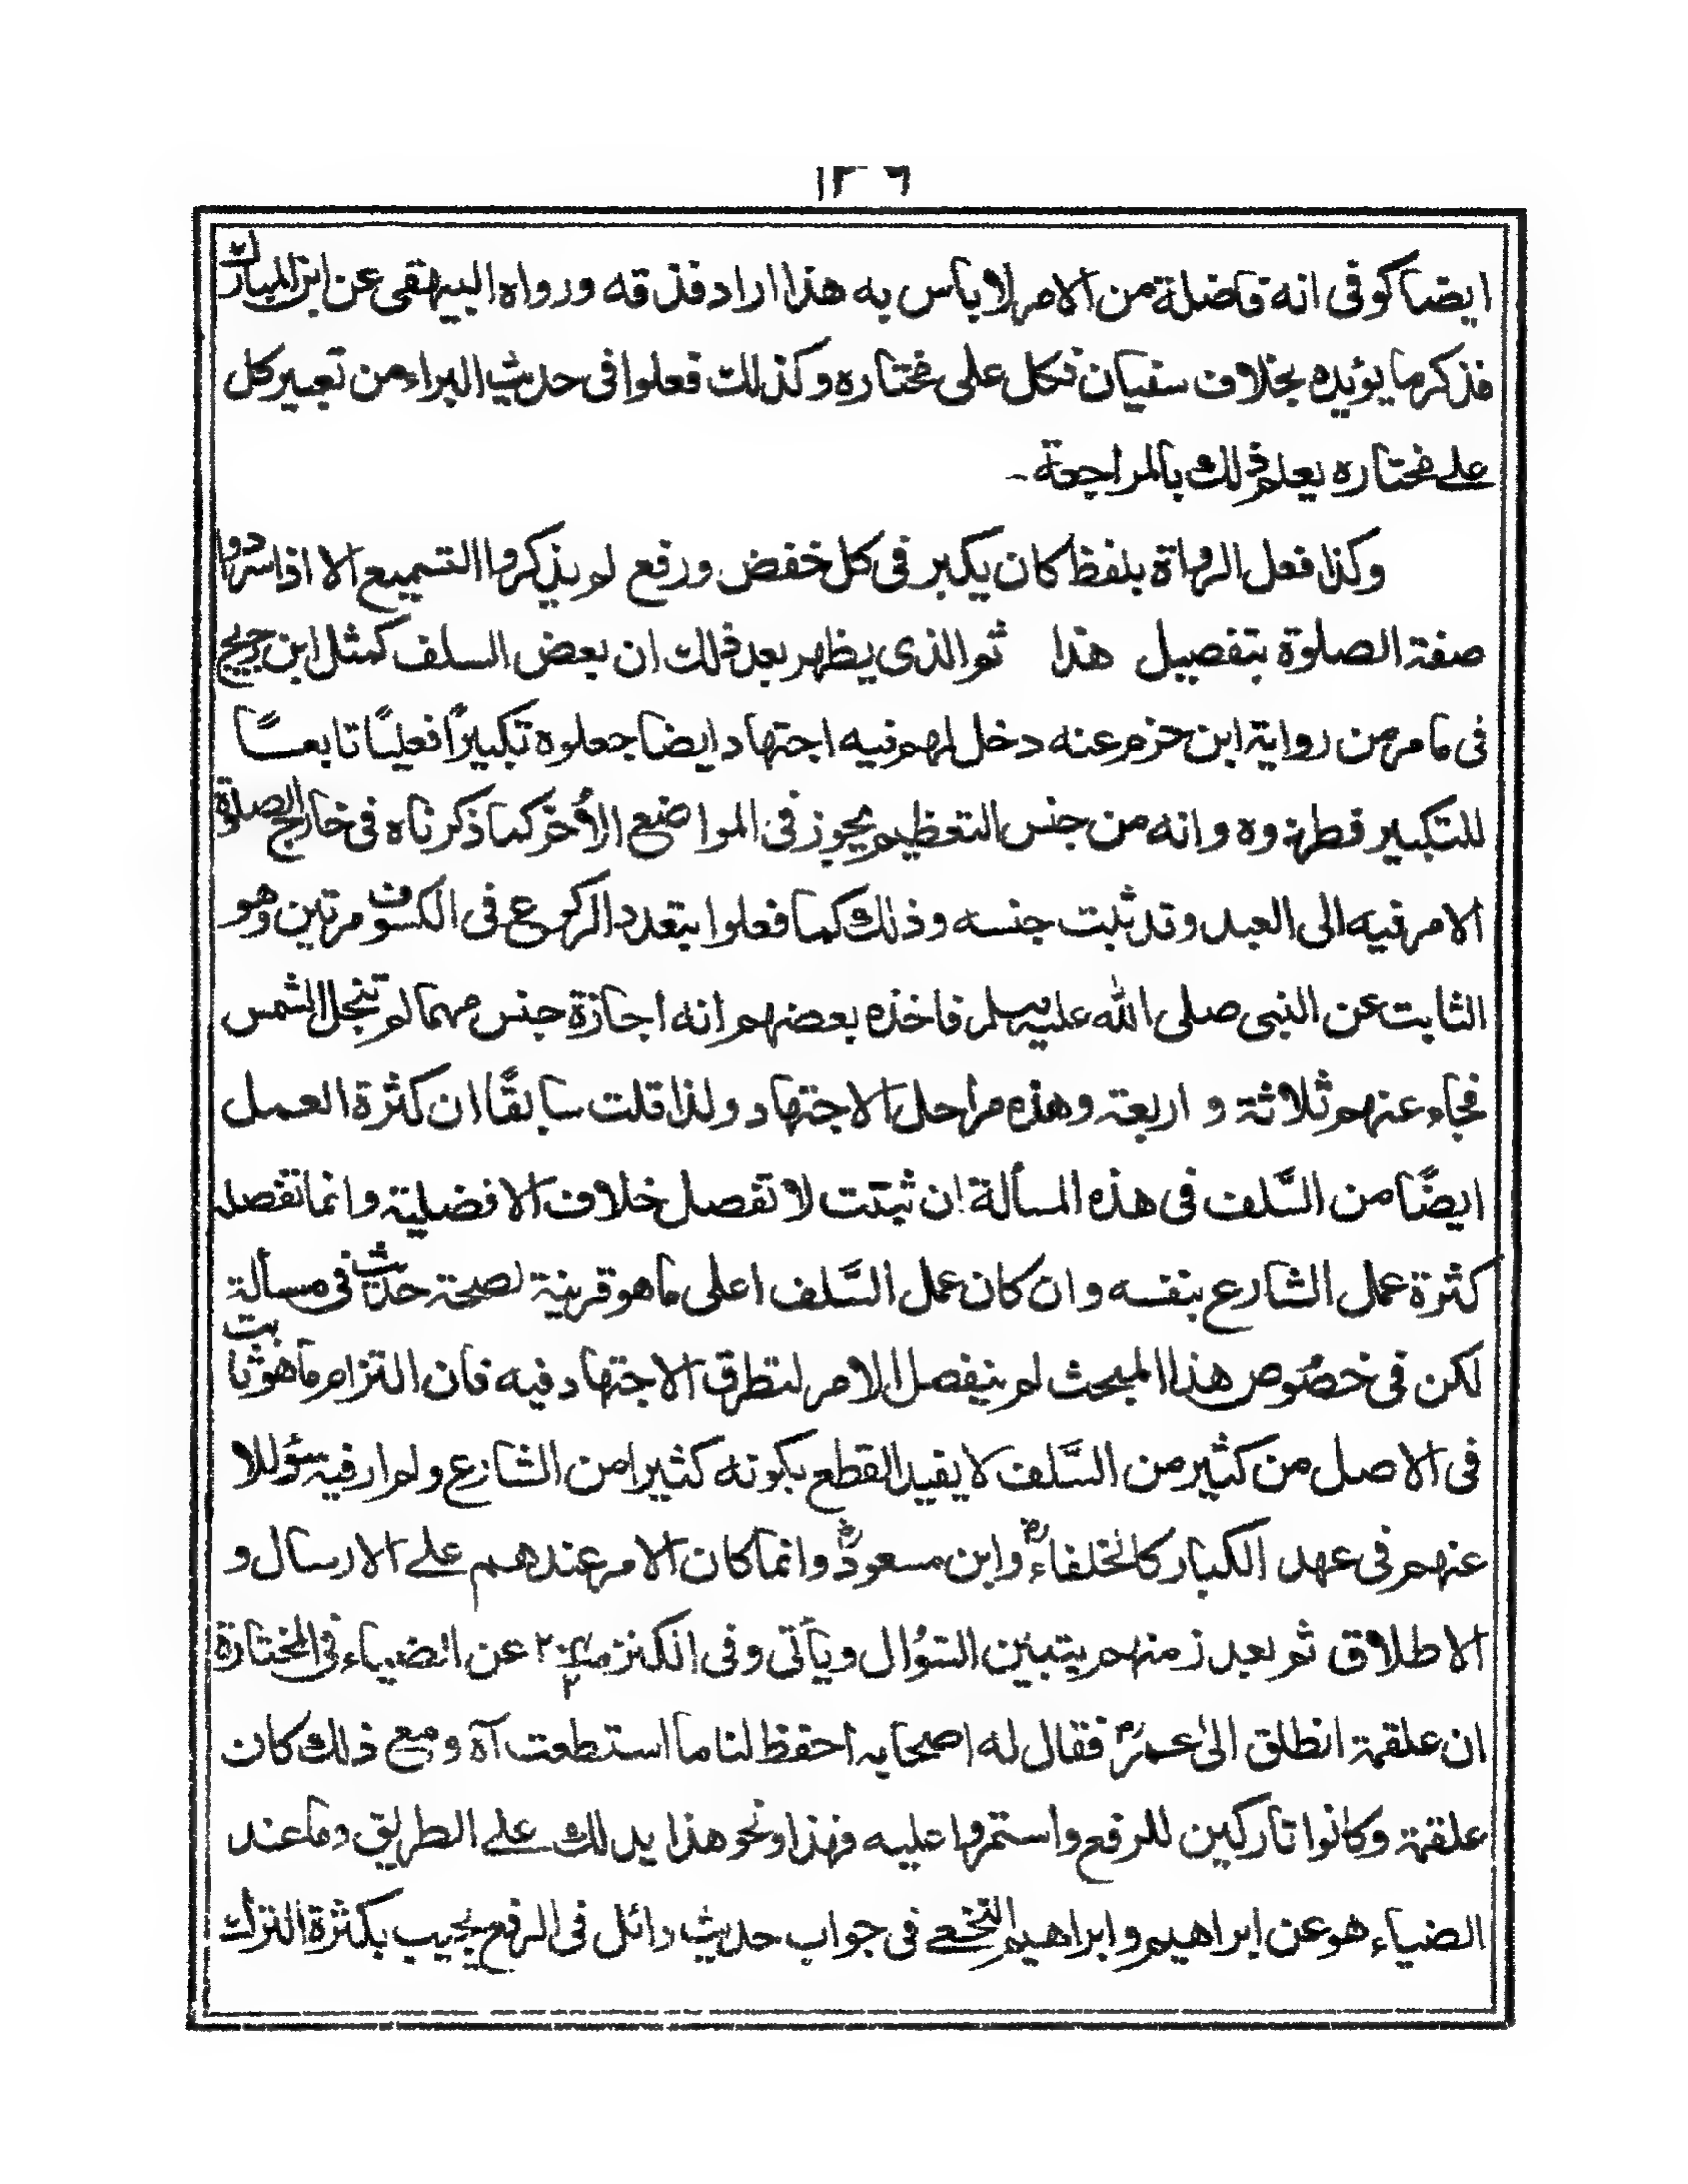 ١٣٦
ايضا كوفى انه فاضلة من الامر لا باس به هذا اراد فذقه ورواه البيهقى عن ابن المبارك
فذكر ما يؤيده بخلاف سفيان فكل على مختاره وكذلك فعلوا فى حديث البراء من تعبير كل
على مختاره يعلم ذلك بالمراجعة -
وكذا فعل الرواة بلفظ كان يكبر فى كل خفض ورفع لم يذكروا التسميع الا اذا سردوا
صفة الصلوة بتفصيل هذا ثم الذى يظهر بعد ذلك ان بعض السلف كمثل ابن جريج
فى ما مر من رواية ابن حزم عنه دخل لهم فيه اجتهاد ايضا جعلوه تكبيرًا فعليًا تابعًا
للتكبير فطردوه وانه من جنس التعظيم يجوز فى المواضع الأخر كما ذكرناه فى خارج الصلوة
الامر فيه الى العبد وقد ثبت جنسه وذلك كما فعلوا بتعدد الركوع فى الكسوف مرتين وهو
الثابت عن النبى صلى الله عليه وسلم فاخذه بعضهم انه اجازة جنس مهما لم تنجل الشمس
فجاء عنهم ثلاثة و اربعة وهذه مراحل الاجتهاد ولذا قلت سابقًا ان كثرة العمل
ايضًا من السَّلف فى هذه المسألة ان ثبتت لا تفصل خلاف الافضلية وانما تفصله
كثرة عمل الشارع بنفسه وان كان عمل السَّلف اعلى ما هو قرينة لصحة حديث فى مسألة
لكن فى خصُوص هذا المبحث لم ينفصل الامر لتطرق الاجتهاد فيه فان التزام ما هو ثابت
فى الاصل من كثير من السَّلف لا يفيد القطع بكونه كثيرا من الشارع ولم ار فيه سؤالا
عنهم فى عهد الكبار كالخلفاءؓ وابن مسعودؓ وانما كان الامر عندهم على الارسال و
الاطلاق ثم بعد زمنهم يتبين السؤال ويأتى وفى الكنز عن الضياء فى المختارة
ان علقمة انطلق الىٰ عمرؓ فقال له اصحابه احفظ لنا ما استطعت آه ومع ذلك كان
علقمة وكانوا تاركين للرفع واستمروا عليه فهذا ونحو هذا يدلك على الطريق وما عند
الضياء هو عن ابراهيم وابراهيم النخعى فى جواب حديث وائل فى الرفع يجيب بكثرة الترك